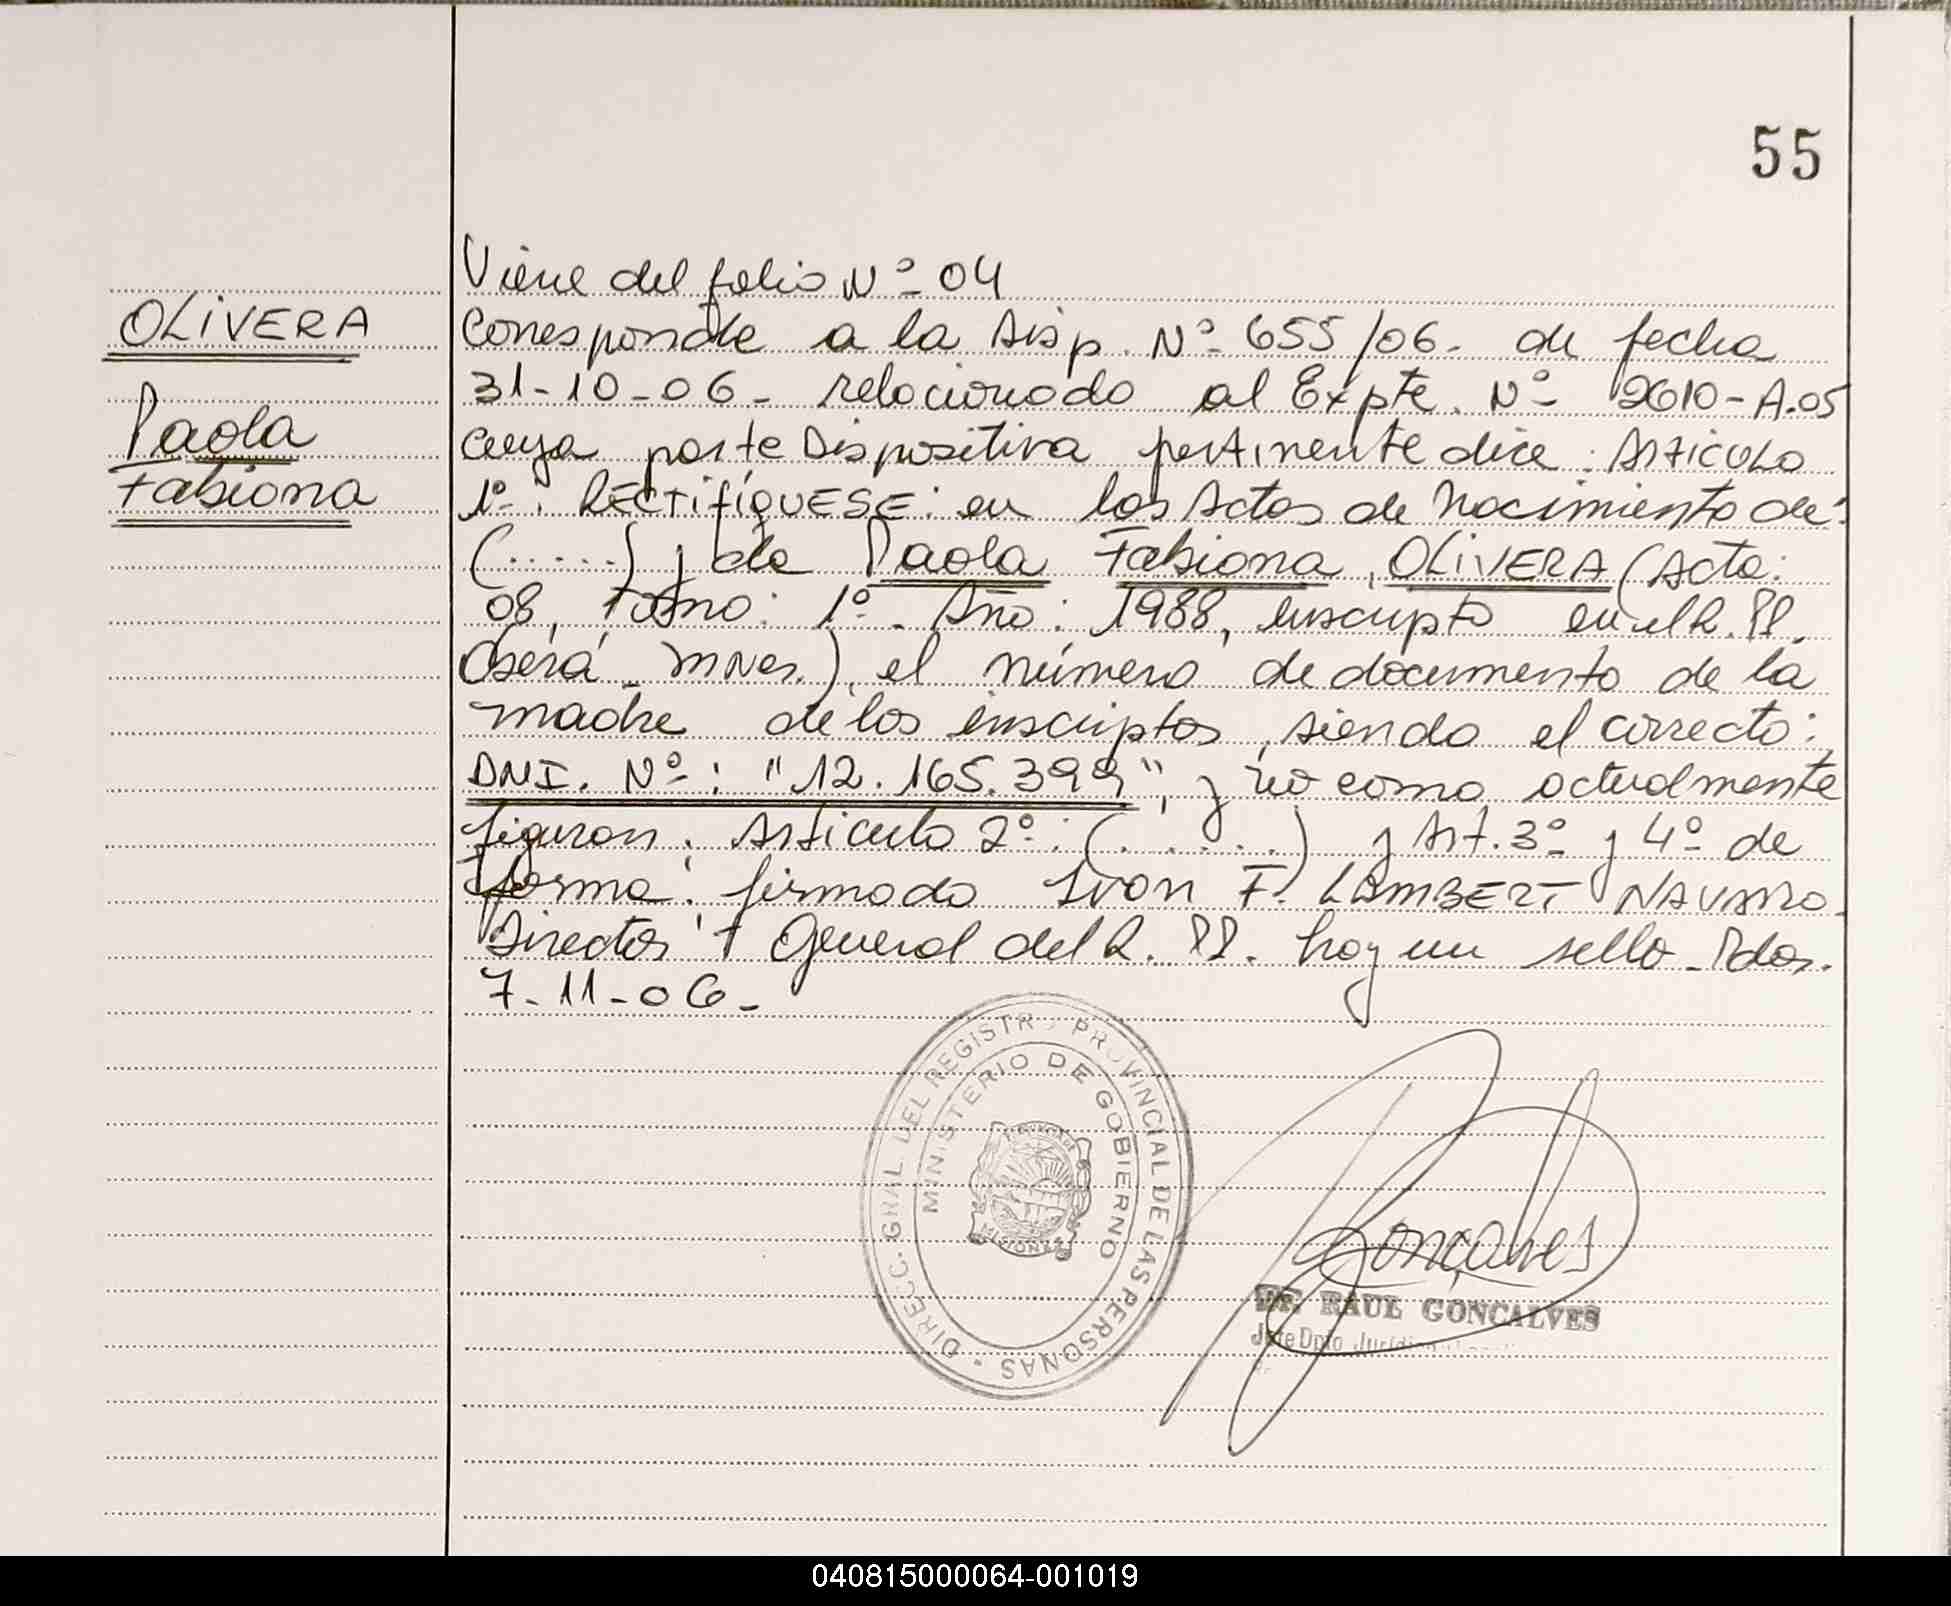 55
OLIVERA
Paola
Fabiana
Viene del folio Nº 04
Corresponde a la Disp. Nº 655/06. de fecha
31-10-06- relacionado al Expte. Nº 2610-A.05
cuya parte Dispositiva pertinente dice: Articulo
1º: RECTIFÍQUESE: en las Actas de Nacimiento de:
(.....) y de Paola Fabiana OLIVERA (Acta:
08, Tomo: 1º. Año: 1988, inscripto en el R.PP.
Oberá Mnes.), el número de documento de la
madre de los inscriptos, siendo el correcto:
DNI. Nº: "12.165.399", y no como actualmente
figuran. Articulo 2º: (.....) y Art. 3º y 4º de
forma. firmado Ivan F. LAMBERT NAVARRO
Director General del R. PP. hay un sello. Pdas.
7-11-06-
DIRECC. GRAL. DEL REGISTRO PROVINCIAL DE LAS PERSONAS
MINISTERIO DE GOBIERNO
PROVINCIA DE MISIONES
Gonçalves
Dr. RAUL GONCALVES
Jefe Dpto.
040815000064-001019